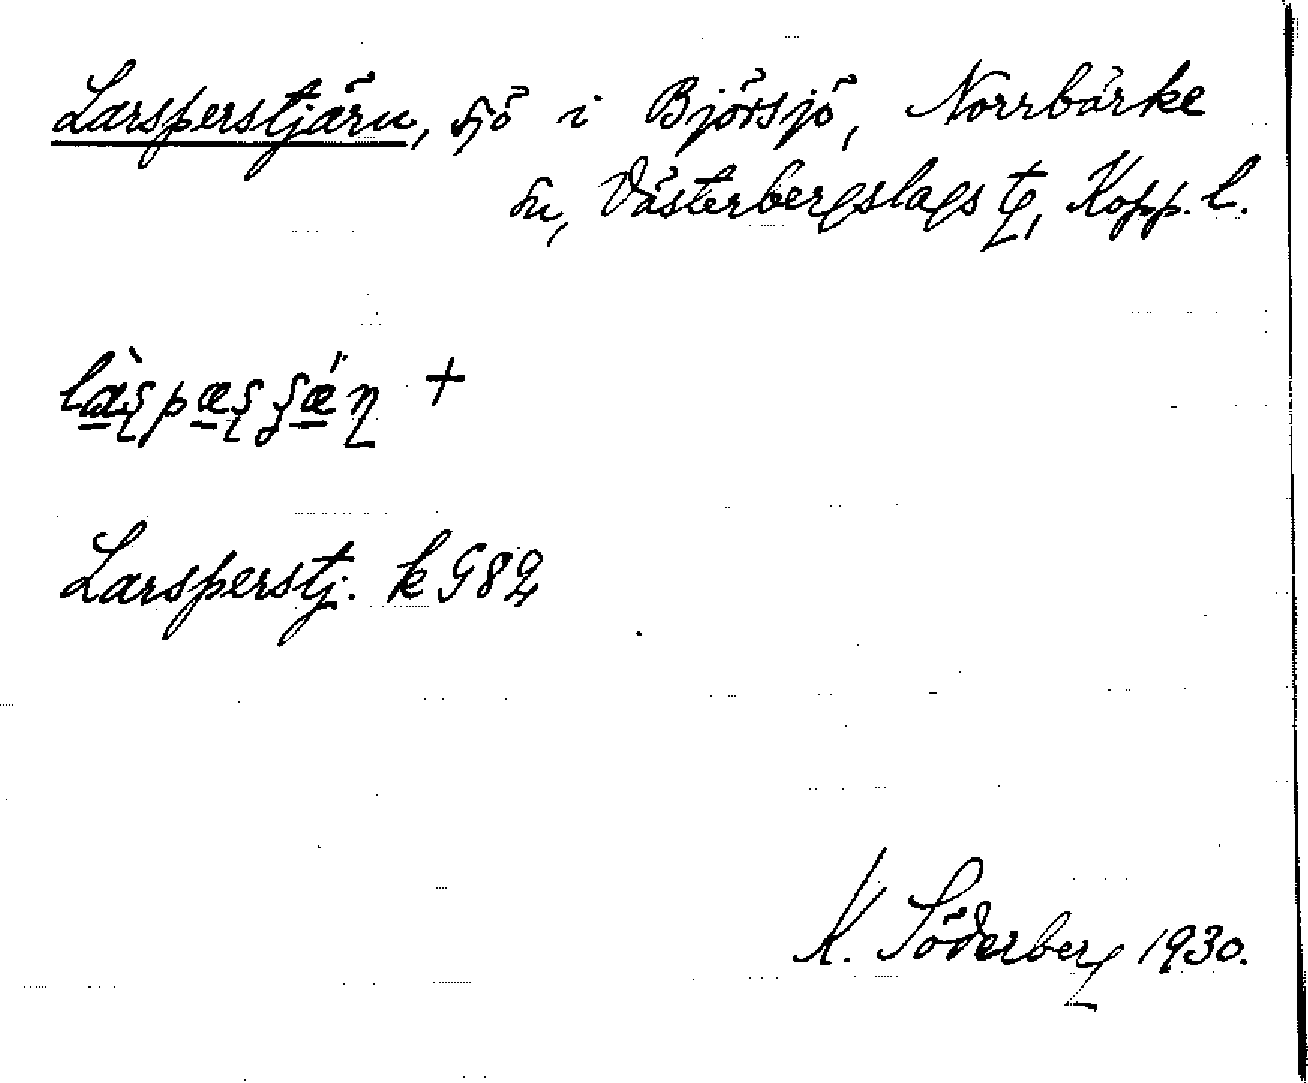 Larsperstjärn, sjö i Björsjö, Norrbärke
sn, Västerbergslags tg, Kopp. l.
+
Larsperstj. k G 82
K. Söderberg 1930.